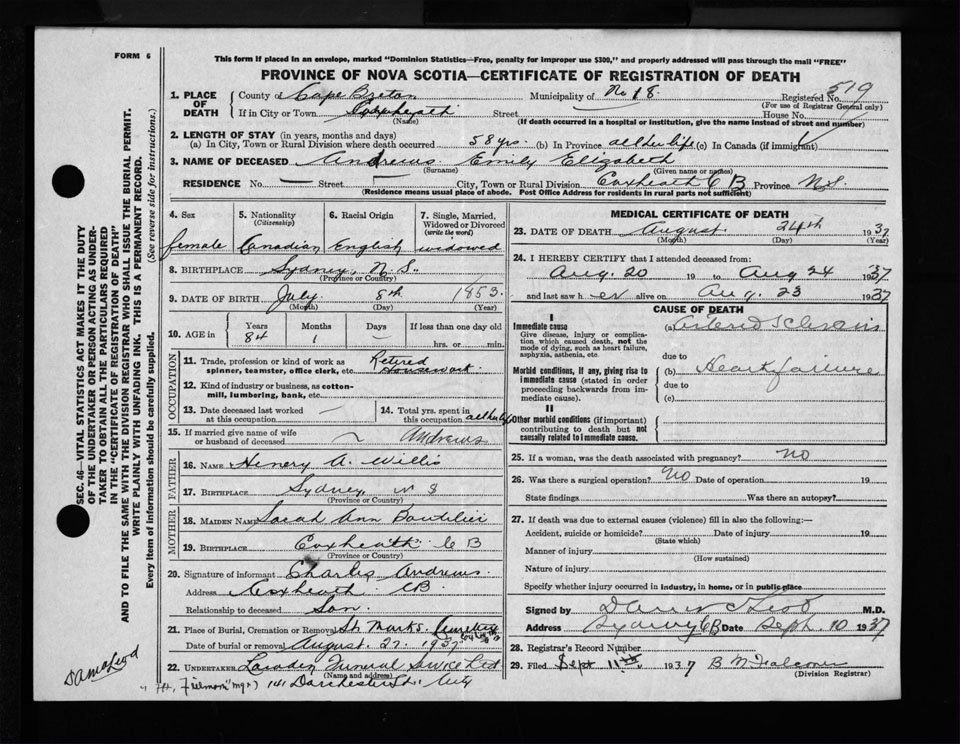 FORM 6
This form if placed in an envelope, marked "Dominion Statistics—Free, penalty for improper use $300," and properly addressed will pass through the mail "FREE"
PROVINCE OF NOVA SCOTIA—CERTIFICATE OF REGISTRATION OF DEATH
1. PLACE OF DEATH
County of Cape Breton Municipality of No 18. Registered No. 519
(For use of Registrar General only)
If in City or Town Street House No.
(Name) (If death occurred in a hospital or institution, give the name instead of street and number)
2. LENGTH OF STAY (in years, months and days)
(a) In City, Town or Rural Division where death occurred 58 yrs. (b) In Province all her life (c) In Canada (if immigrant)
3. NAME OF DECEASED Andrews Emily Elizabeth
(Surname) (Given name or names)
RESIDENCE No. — Street — City, Town or Rural Division Coxheath C B Province N.S.
(Residence means usual place of abode. Post Office Address for residents in rural parts not sufficient)
4. Sex 5. Nationality (Citizenship) 6. Racial Origin 7. Single, Married, Widowed or Divorced (write the word)
female Canadian English widowed
8. BIRTHPLACE Sydney, N.S.
(Province or Country)
9. DATE OF BIRTH July 8th 1853.
(Month) (Day) (Year)
10. AGE in Years Months Days If less than one day old
84 1 — hrs. or min.
OCCUPATION
11. Trade, profession or kind of work as spinner, teamster, office clerk, etc. Retired Housework.
12. Kind of industry or business, as cotton-mill, lumbering, bank, etc.
13. Date deceased last worked at this occupation —
14. Total yrs. spent in this occupation all her life
15. If married give name of wife or husband of deceased Andrews
FATHER
16. NAME Henery A. Willis
17. BIRTHPLACE Sydney N S
(Province or Country)
MOTHER
18. MAIDEN NAME Sarah Ann Boutilier
19. BIRTHPLACE Coxheath C B
(Province or Country)
20. Signature of informant Charles Andrews.
Address Coxheath CB
Relationship to deceased Son.
21. Place of Burial, Cremation or Removal St Marks. Cemetery
Date of burial or removal August. 27. 1937
22. UNDERTAKER Funeral Service Ltd
(Name and address)
141 Dorchester St. City
MEDICAL CERTIFICATE OF DEATH
23. DATE OF DEATH August. 24th 1937
(Month) (Day) (Year)
24. I HEREBY CERTIFY that I attended deceased from:
Aug. 20 19 to Aug 24 1937
and last saw h er alive on Aug. 23 1937
CAUSE OF DEATH
I
Immediate cause
Give disease, injury or complication which caused death, not the mode of dying, such as heart failure, asphyxia, asthenia, etc.
(a) Arterio Sclerosis
due to
Morbid conditions, if any, giving rise to immediate cause (stated in order proceeding backwards from immediate cause).
(b) Heart failure
due to
(c)
II
Other morbid conditions (if important) contributing to death but not causally related to immediate cause.
25. If a woman, was the death associated with pregnancy? NO
26. Was there a surgical operation? NO Date of operation 19
State findings Was there an autopsy?
27. If death was due to external causes (violence) fill in also the following:—
Accident, suicide or homicide? Date of injury 19
(State which)
Manner of injury
(How sustained)
Nature of injury
Specify whether injury occurred in industry, in home, or in public place
Signed by M.D.
Address Sydney CB Date Sept. 10 1937
28. Registrar's Record Number
29. Filed Sept 11th 1937 B M Falconer
(Division Registrar)
SEC. 46—VITAL STATISTICS ACT MAKES IT THE DUTY
OF THE UNDERTAKER OR PERSON ACTING AS UNDER-
TAKER TO OBTAIN ALL THE PARTICULARS REQUIRED
IN THE "CERTIFICATE OF REGISTRATION OF DEATH"
AND TO FILE THE SAME WITH THE DIVISION REGISTRAR WHO SHALL ISSUE THE BURIAL PERMIT.
WRITE PLAINLY WITH UNFADING INK. THIS IS A PERMANENT RECORD.
Every item of information should be carefully supplied. (See reverse side for instructions.)